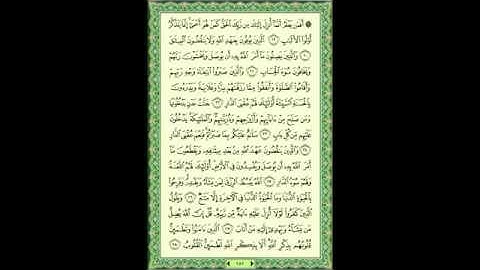 ۞ أَفَمَن يَعْلَمُ أَنَّمَا أُنزِلَ إِلَيْكَ مِن رَّبِّكَ الْحَقُّ كَمَنْ هُوَ أَعْمَىٰ إِنَّمَا يَتَذَكَّرُ
أُولُوا الْأَلْبَابِ ١٩ الَّذِينَ يُوفُونَ بِعَهْدِ اللَّهِ وَلَا يَنقُضُونَ الْمِيثَاقَ
٢٠ وَالَّذِينَ يَصِلُونَ مَا أَمَرَ اللَّهُ بِهِ أَن يُوصَلَ وَيَخْشَوْنَ رَبَّهُمْ
وَيَخَافُونَ سُوءَ الْحِسَابِ ٢١ وَالَّذِينَ صَبَرُوا ابْتِغَاءَ وَجْهِ رَبِّهِمْ
وَأَقَامُوا الصَّلَوٰةَ وَأَنفَقُوا مِمَّا رَزَقْنَٰهُمْ سِرًّا وَعَلَانِيَةً وَيَدْرَءُونَ
بِالْحَسَنَةِ السَّيِّئَةَ أُولَٰئِكَ لَهُمْ عُقْبَى الدَّارِ ٢٢ جَنَّٰتُ عَدْنٍ يَدْخُلُونَهَا
وَمَن صَلَحَ مِنْ ءَابَائِهِمْ وَأَزْوَٰجِهِمْ وَذُرِّيَّٰتِهِمْ وَالْمَلَٰئِكَةُ يَدْخُلُونَ
عَلَيْهِم مِّن كُلِّ بَابٍ ٢٣ سَلَٰمٌ عَلَيْكُم بِمَا صَبَرْتُمْ فَنِعْمَ عُقْبَى الدَّارِ
٢٤ وَالَّذِينَ يَنقُضُونَ عَهْدَ اللَّهِ مِن بَعْدِ مِيثَٰقِهِ وَيَقْطَعُونَ مَا
أَمَرَ اللَّهُ بِهِ أَن يُوصَلَ وَيُفْسِدُونَ فِي الْأَرْضِ أُولَٰئِكَ لَهُمُ اللَّعْنَةُ
وَلَهُمْ سُوءُ الدَّارِ ٢٥ اللَّهُ يَبْسُطُ الرِّزْقَ لِمَن يَشَاءُ وَيَقْدِرُ وَفَرِحُوا
بِالْحَيَوٰةِ الدُّنْيَا وَمَا الْحَيَوٰةُ الدُّنْيَا فِي الْآخِرَةِ إِلَّا مَتَٰعٌ ٢٦ وَيَقُولُ
الَّذِينَ كَفَرُوا لَوْلَا أُنزِلَ عَلَيْهِ ءَايَةٌ مِّن رَّبِّهِ قُلْ إِنَّ اللَّهَ يُضِلُّ
مَن يَشَاءُ وَيَهْدِي إِلَيْهِ مَنْ أَنَابَ ٢٧ الَّذِينَ ءَامَنُوا وَتَطْمَئِنُّ
قُلُوبُهُم بِذِكْرِ اللَّهِ أَلَا بِذِكْرِ اللَّهِ تَطْمَئِنُّ الْقُلُوبُ ٢٨